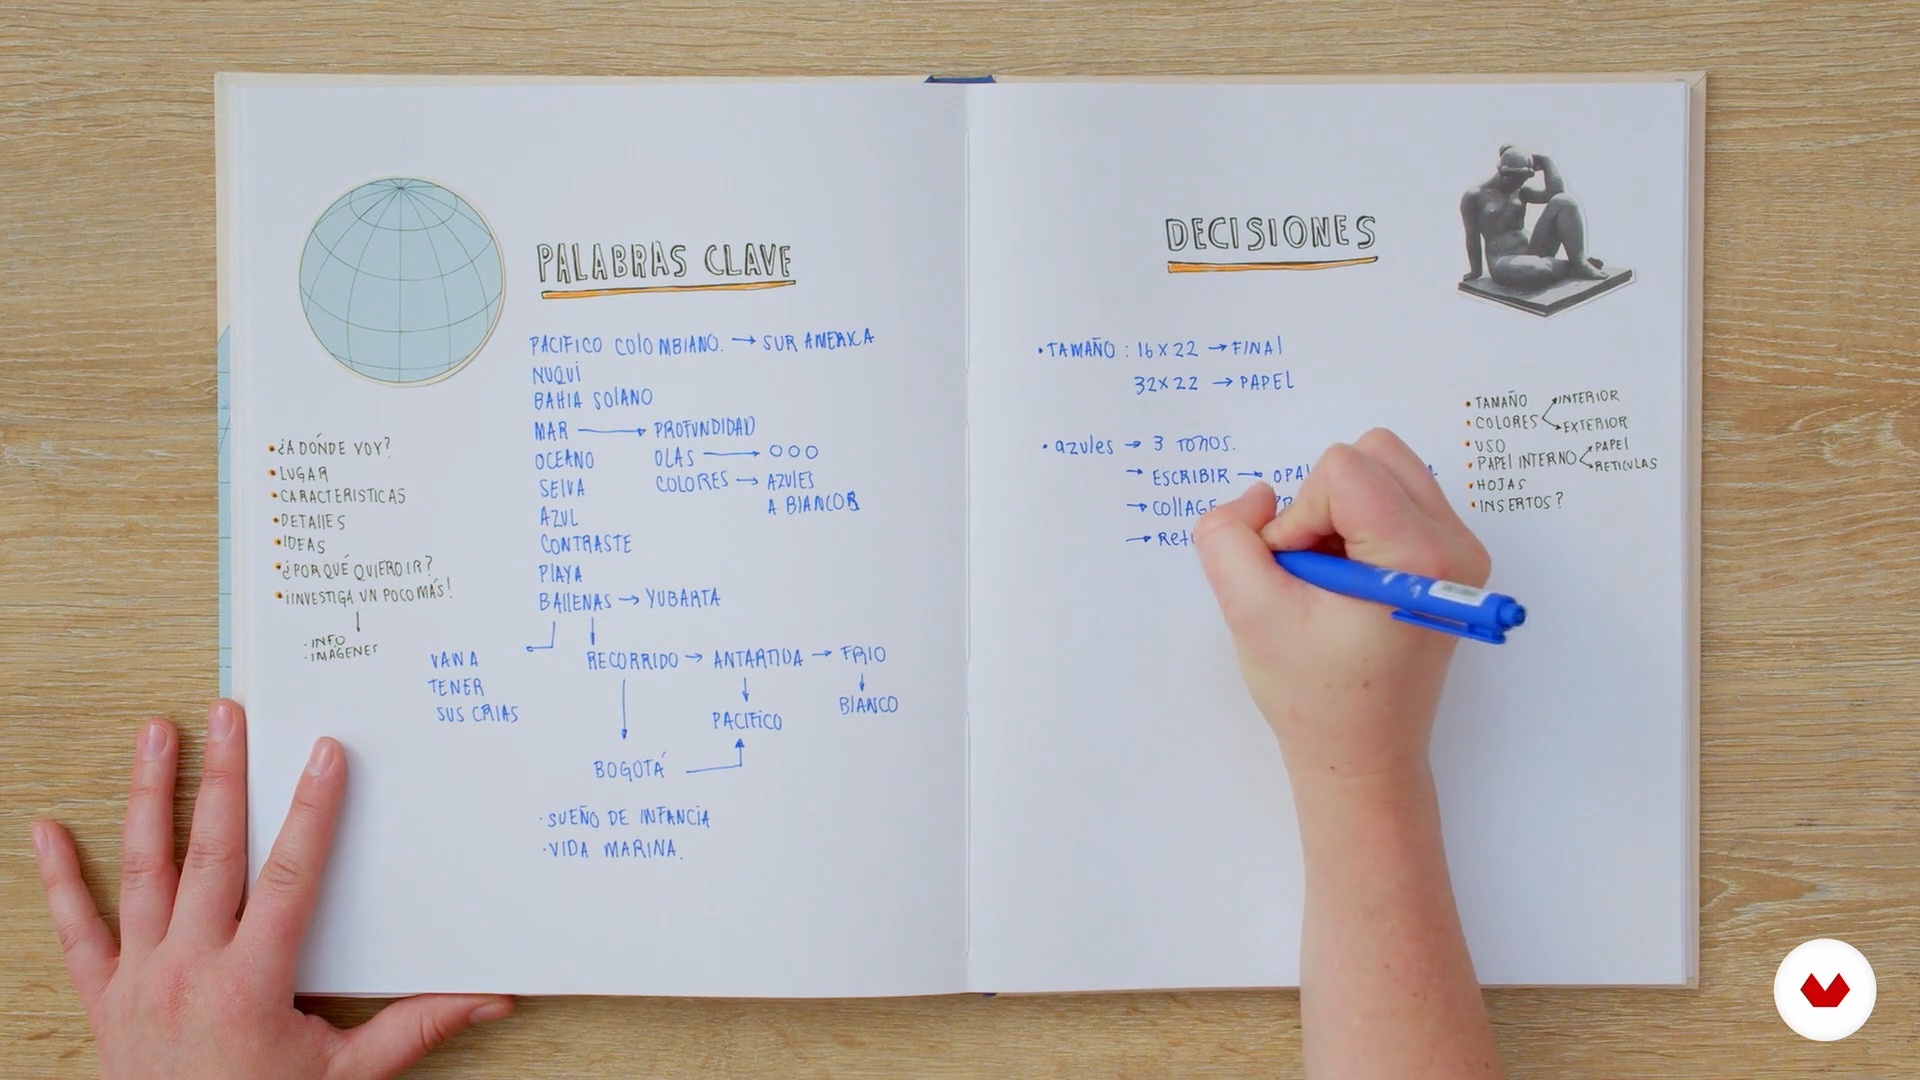 PALABRAS CLAVE
PACIFICO COLOMBIANO. → SUR AMERICA
NUQUÍ
BAHIA SOLANO
MAR → PROFUNDIDAD
OCEANO OLAS → OOO
SELVA COLORES → AZULES
AZUL A BLANCOS
CONTRASTE
PLAYA
BALLENAS → YUBARTA
VAN A RECORRIDO → ANTARTIDA → FRIO
TENER
SUS CRIAS PACIFICO BLANCO
BOGOTÁ
·SUEÑO DE INFANCIA
·VIDA MARINA.
•¿A DÓNDE VOY?
•LUGAR
•CARACTERISTICAS
•DETALLES
•IDEAS
•¿POR QUÉ QUIERO IR?
•¡INVESTIGA UN POCO MÁS!
·INFO
·IMÁGENES
DECISIONES
•TAMAÑO : 16X22 → FINAL
32X22 → PAPEL
• azules → 3 TONOS.
→ ESCRIBIR →
→ COLLAGE
→
• TAMAÑO
• COLORES INTERIOR
EXTERIOR
• USO
• PAPEL INTERNO PAPEL
RETICULAS
• HOJAS
• INSERTOS?